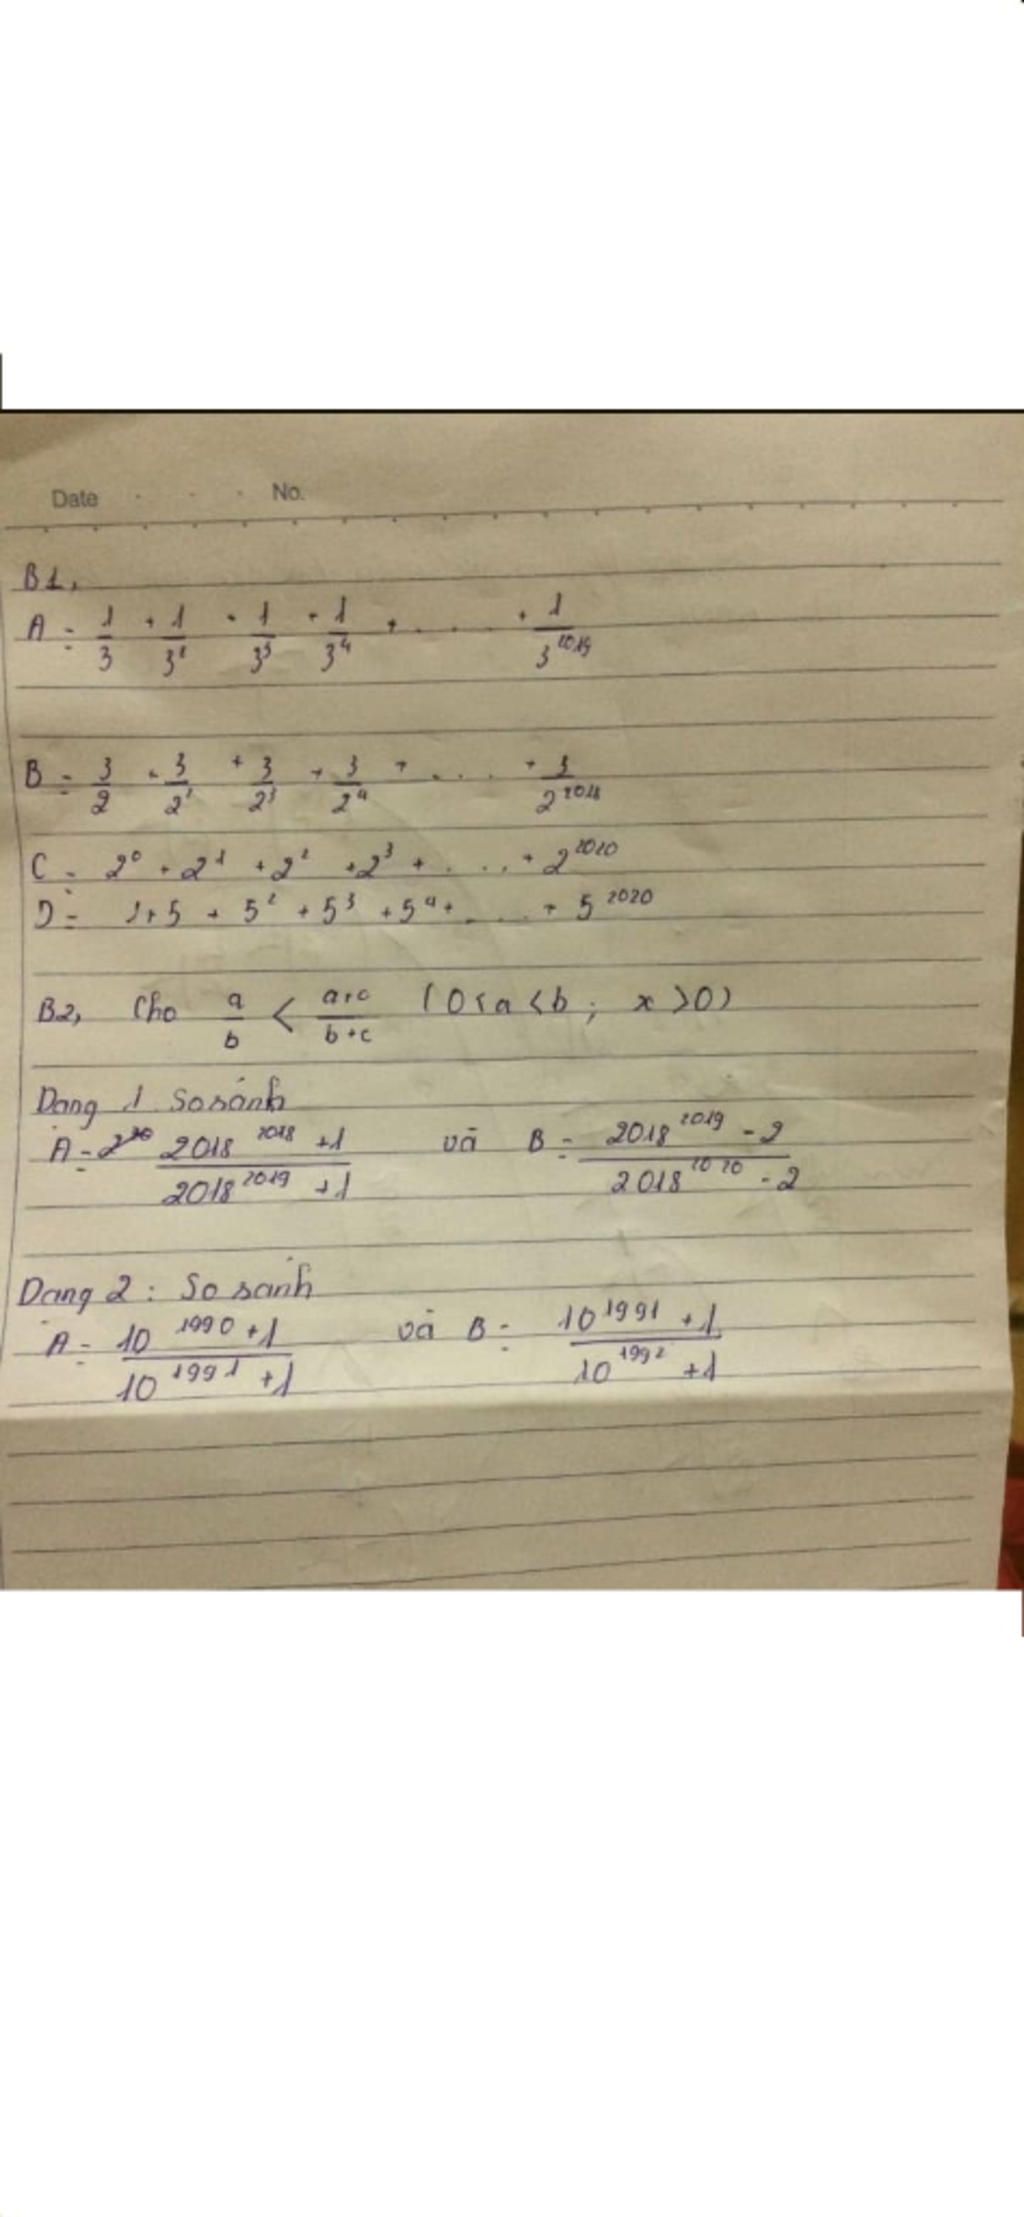 Date No.
B1,
A = 1/3 + 1/3² + 1/3³ + 1/3⁴ + .... + 1/3²⁰¹⁹
B = 3/2 + 3/2² + 3/2³ + 3/2⁴ + .... + 3/2²⁰¹⁸
C = 2⁰ + 2¹ + 2² + 2³ + .... + 2²⁰²⁰
D = 1+5 + 5² + 5³ + 5⁴ + .... + 5²⁰²⁰
B2, Cho a/b < a+c/b+c (0<a<b; x>0)
Dạng 1 So sánh
A = 2018²⁰¹⁸ +1 / 2018²⁰¹⁹ +1 và B = 2018²⁰¹⁹ - 2 / 2018²⁰²⁰ - 2
Dạng 2 : So sánh
A = 10¹⁹⁹⁰ +1 / 10¹⁹⁹¹ +1 và B = 10¹⁹⁹¹ +1 / 10¹⁹⁹² +1